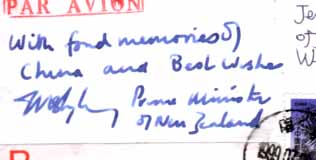 PAR AVION
With fond memories of
China and Best Wishes
Prime Minister
of New Zealand
Je
of
W
1999.07
R